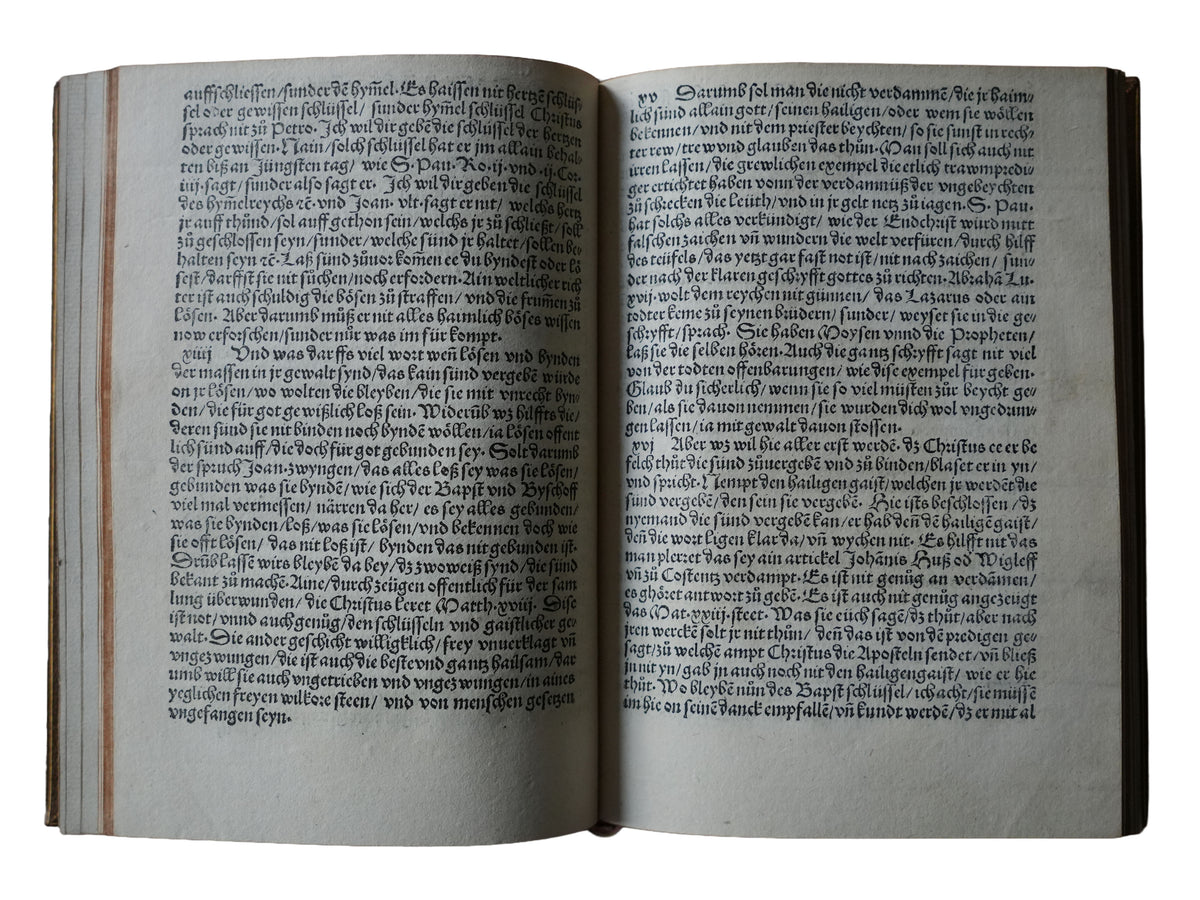 auffschliessen/sunder dē hym̃el. Es haissen nit hertzē schlüs⸗
sel oder gewissen schlüssel/ sunder hym̃el schlüssel Christus
sprach nit zů Petro. Ich wil dir gebē die schlüssel der hertzen
oder gewissen. Nain/solch schlüssel hat er jm allain behal⸗
ten biß an Jüngsten tag/ wie S. Pau. Ro. ij. vnd .ij. Cor.
iiij. sagt/ sunder also sagt er. Ich wil dir geben die schlüssel
des hym̃elreychs ꝛc. vnd Joan. vlt. sagt er nit/ welchs hertz
jr auff thůnd/ sol auff gethon sein/ welchs jr zů schließt/ soll
zů geschlossen seyn/ sunder/ welche sünd jr haltet/ sollen be⸗
halten seyn ꝛc. Laß sünd zůuor kom̃en ee du byndest oder lö
sest/ darffst sie nit sůchen/ noch erfordern. Ain weltlicher rich
ter ist auch schuldig die bösen zů straffen/ vnd die frum̃en zů
lösen. Aber darumb můß er nit alles haimlich böses wissen
now erforschen/sunder nůr was im für kompt.
xiiij Vnd was darffs viel wort weñ lösen vnd bynden
der massen in jr gewalt synd/das kain sünd vergebē würde
on jr lösen/ wo wolten die bleyben/ die sie mit vnrecht byn⸗
den/die für got gewißlich loß sein. Widerüb wz hilffts die/
deren sünd sie nit binden noch bynden wöllen/ ia lösen offent
lich sünd auff/die doch für got gebunden sey. Solt darumb
der spruch Joan. zwyngen/das alles loß sey was sie lösen/
gebunden was sie byndē/ wie sich der Bapst vnd Byschoff
viel mal vermessen/ närren da her/ es sey alles gebunden/
was sie bynden/ loß/was sie lösen/vnd bekennen doch wie
sie offt lösen/ das nit loß ist/ bynden das nit gebunden ist.
Drüb lassē wirs bleybē da bey/ dz zwo weiß synd/ die sünd
bekant zů machē. Aine/durch zeügen offentlich für der sam
lung überwunden/ die Christus leret Matth. xviij. Dise
ist not/ vnnd auch genůg/den schlüsseln vnd gaistlicher ge⸗
walt. Die ander geschicht willigklich/ frey vnuerklagt vñ
vngezwungen/die ist auch die beste vnd gantz hailsam/dar
umb will sie auch vngetrieben vnd vngezwungen/ in aines
yeglichen freyen wilkore steen/ vnd von menschen gesetzen
vngefangen seyn.
xv Darumb sol man die nicht verdammē/die jr haim⸗
lich sünd allain gott/ seinen hailigen/ oder wem sie wöllen
bekennen/ vnd nit dem priester beychten/ so sie sunst in rech⸗
ter rew/ trew vnd glauben das thůn. Man soll sich auch nit
irren lassen/ die grewlichen exempel die etlich trawmpredi⸗
ger ertichtet haben vonn der verdamnüß der vngebeychten
zů schrecken die leüth/ vnd in jr gelt netz zů iagen. S. Pau.
hat solchs alles verkündigt/ wie der Endchrist würd mitt
falschen zaichen vñ wundern die welt verfüren/ durch hilff
des teüfels/ das yetzt gar fast not ist/ nit nach zaichen/ sun⸗
der nach der klaren geschryfft gottes zů richten. Abrahā Lu⸗
xvij. wolt dem reychen nit günnen/ das Lazarus oder ain
todter keme zů seynen brüdern/ sunder/ weyset sie in die ge⸗
schryfft/ sprach. Sie haben Moysen vnnd die Propheten/
laß sie die selben hören. Auch die gantz schryfft sagt nit viel
von der todten offenbarungen/ wie dise exempel für geben.
Glaub du sicherlich/ wenn sie so viel můsten zůr beycht ge⸗
ben/als sie dauon nemmen/ sie wurden dich wol vngedrun⸗
gen lassen/ ia mit gewalt dauon stossen.
xvj Aber wz wil hie aller erst werdē. dz Christus ee er be
felch thůt die sünd zůuergebē vnd zů binden/ blaset er in yn/
vnd spricht. Nempt den hailigen gaist/ welchen jr werdēt die
sünd vergebē/ den sein sie vergebē. Hie ists beschlossen/ dz
nyemand die sünd vergebē kan/ er hab deñ dē hailigē gaist/
deñ die wort ligen klar da/ vñ wychen nit. Es hilfft nit das
man plerret das sey ain artickel Johānis Huß od Wigleff
vñ zů Costentz verdampt. Es ist nit genůg an verdāmen/
es ghöret antwort zů gebē. Es ist auch nit genůg angezeugt
das Mat. xxiij. steet. Was sie eüch sagē/ dz thůt/ aber nach
jren werckē solt jr nit thůn/ deñ das ist von dē predigen ge⸗
sagt/ zů welchē ampt Christus die Aposteln sendet/ vñ bließ
jn nit yn/ gab jn auch noch nit den hailigen gaist/ wie er hie
thůt. Wo bleybē nůn des Bapst schlüssel/ ich acht/ sie müssē
im hie on seinē danck empfallē/ vñ kundt werdē/ dz er mit al